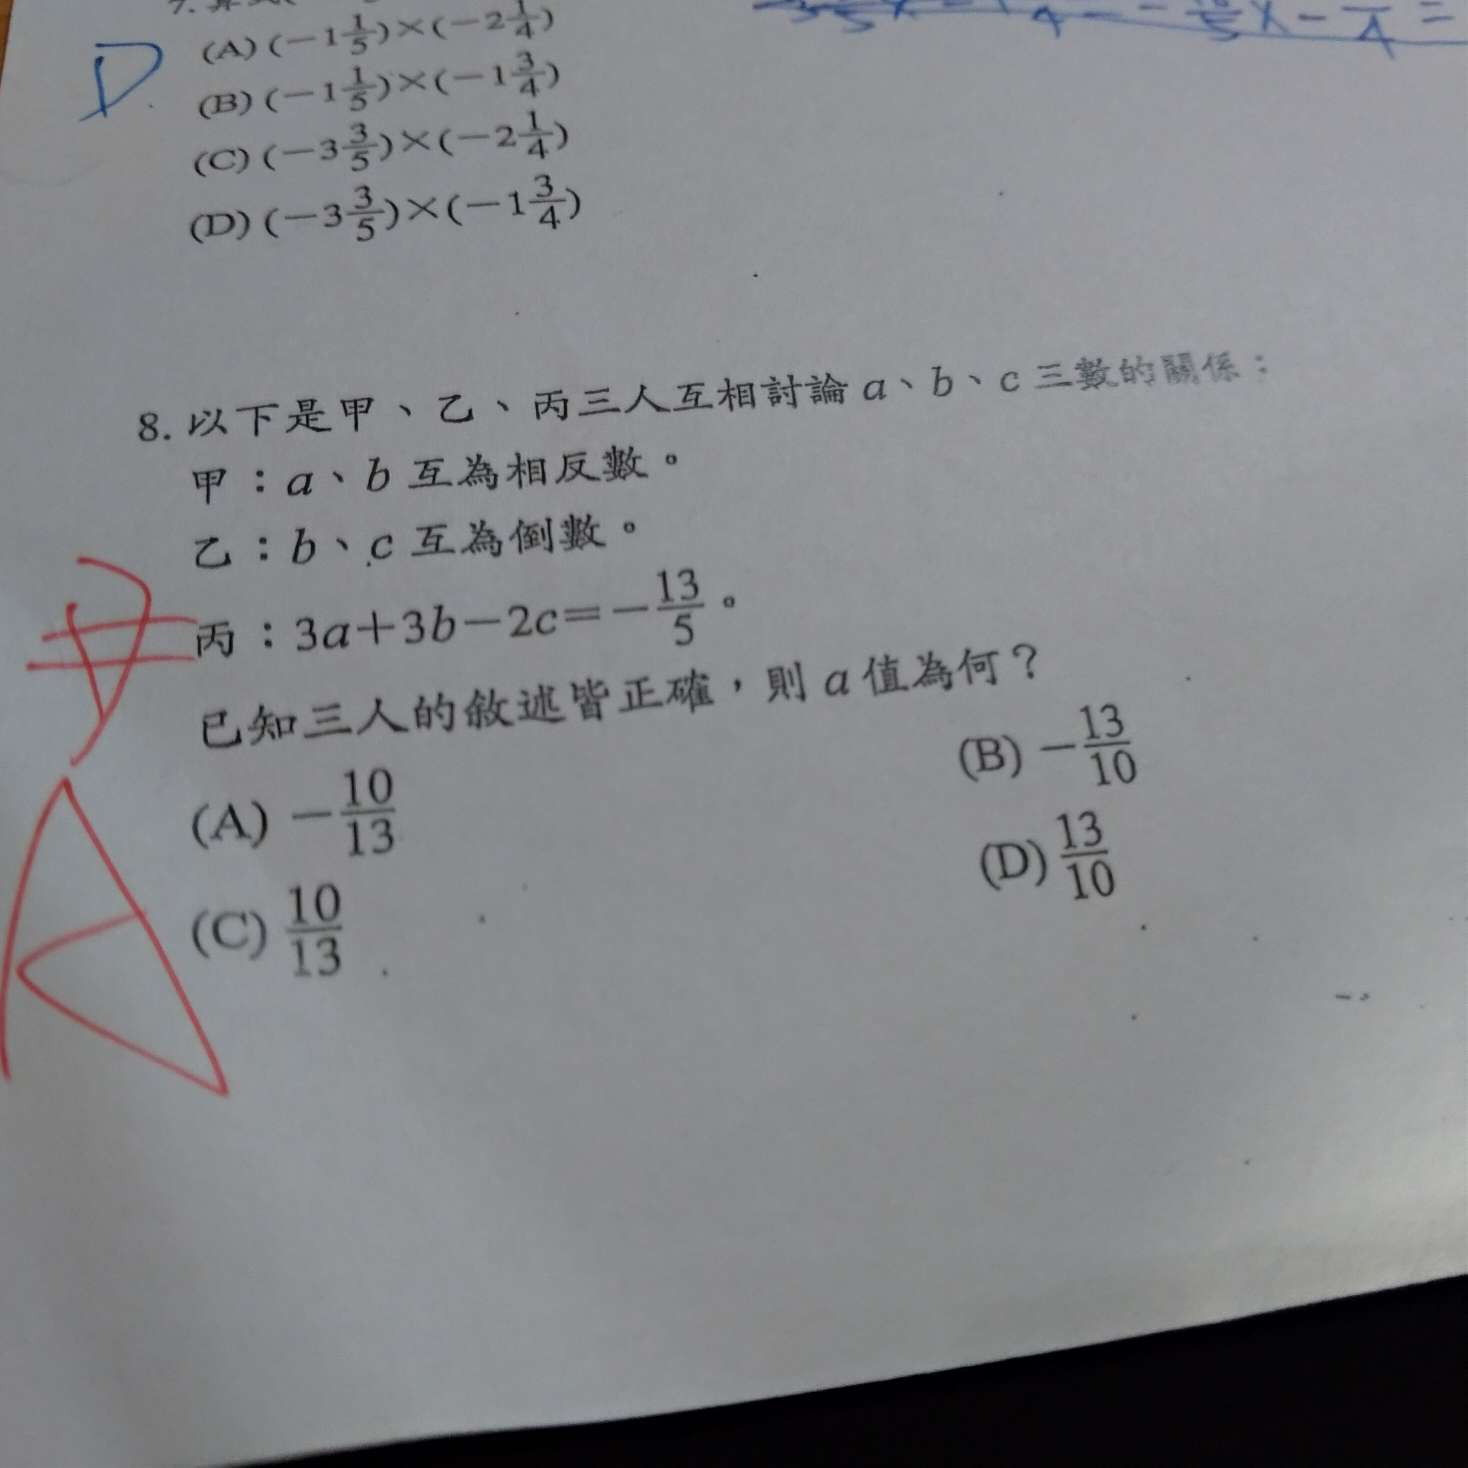 7.
(A) (−1 1/5)×(−2 1/4)
D. (B) (−1 1/5)×(−1 3/4)
(C) (−3 3/5)×(−2 1/4)
(D) (−3 3/5)×(−1 3/4)
8. 以下是甲、乙、丙三人互相討論 a、b、c 三數的關係：
甲：a、b 互為相反數。
乙：b、c 互為倒數。
丙：3a+3b−2c=−13/5。
已知三人的敘述皆正確，則 a 值為何？
(A) −10/13 (B) −13/10
(C) 10/13 (D) 13/10
A